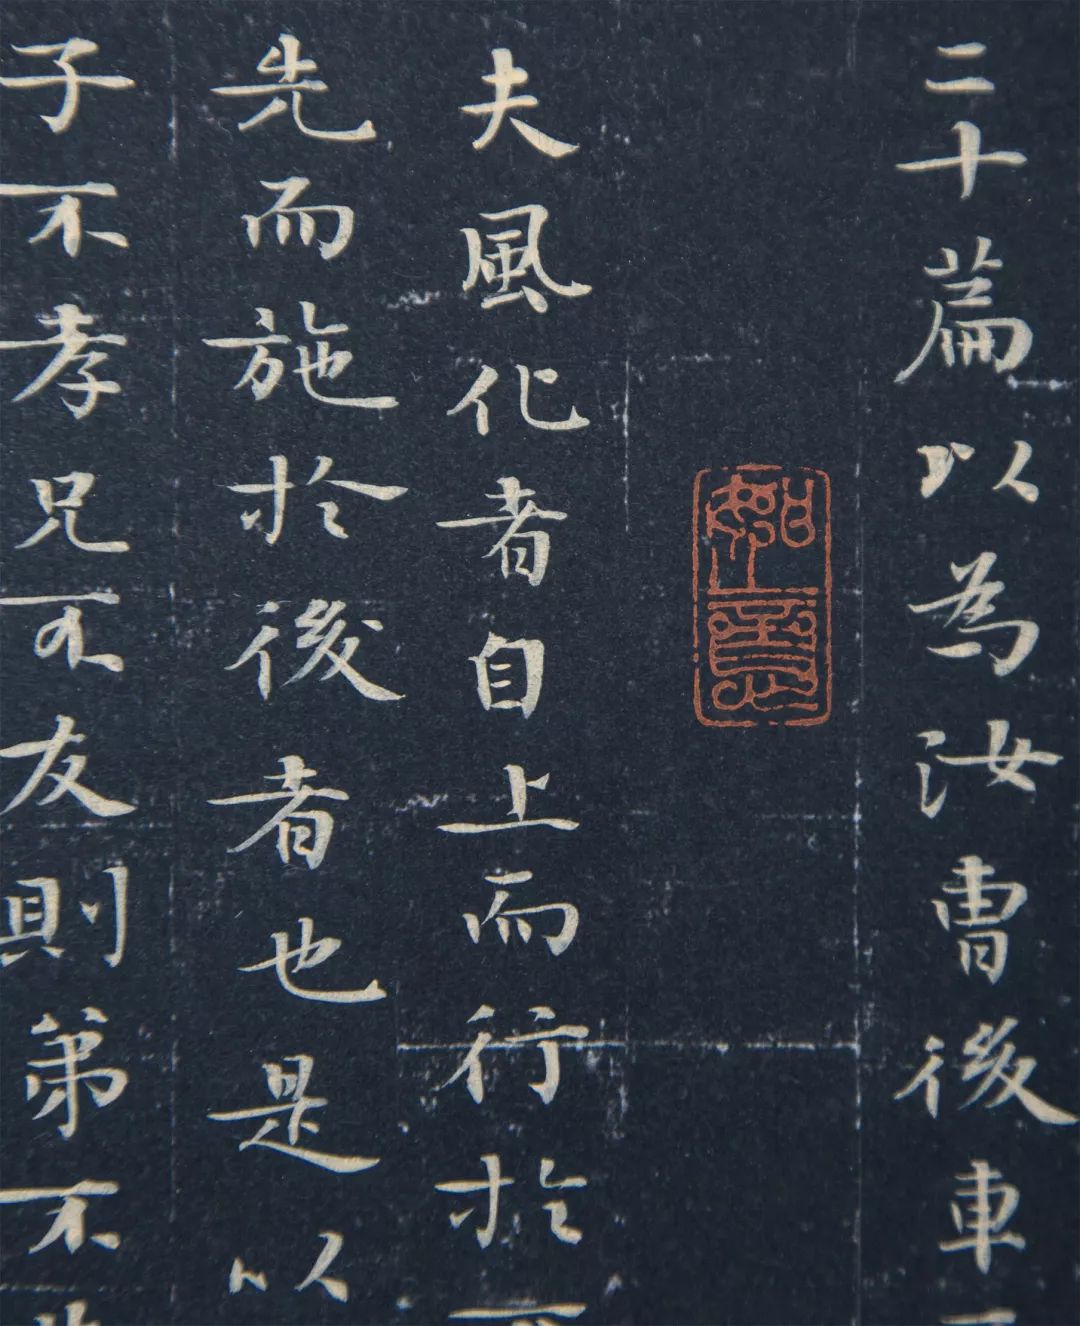 二十篇以為汝曹後車
如意
夫風化者自上而行於
先而施於後者也是以
子不孝兄不友則第不